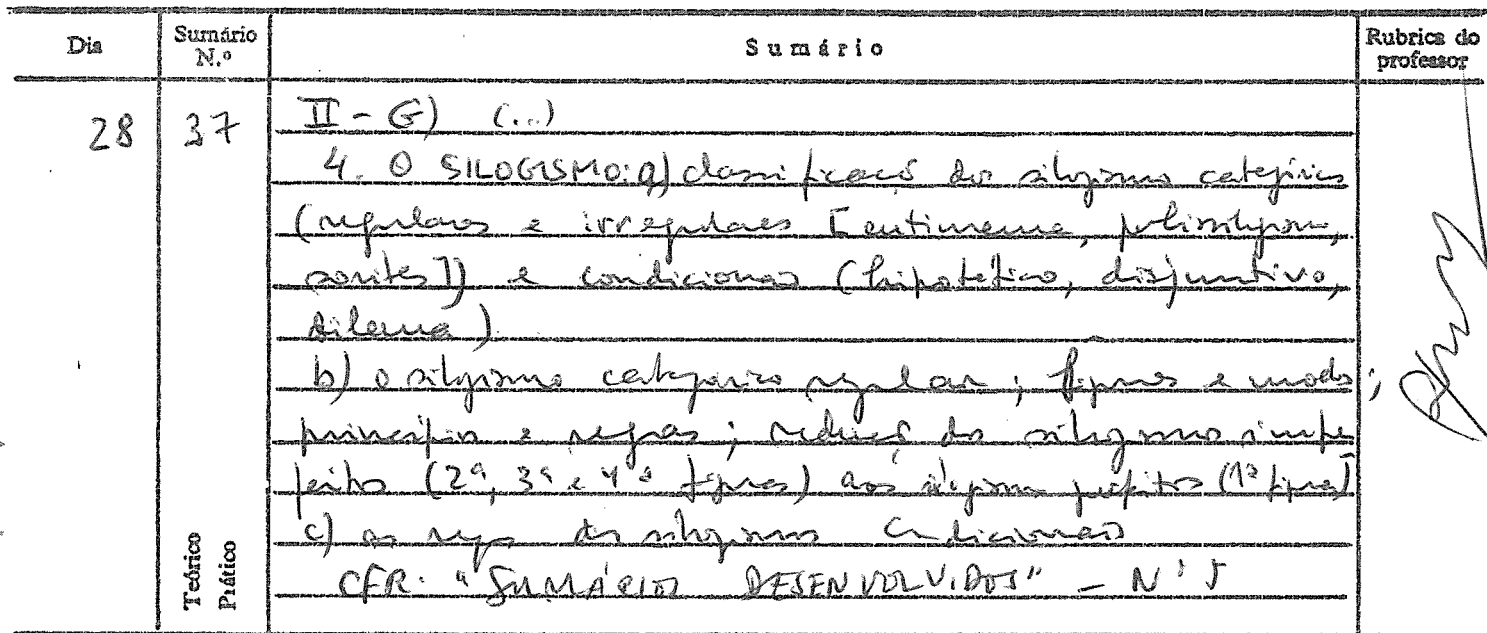 Dia
Sumário N.º
Sumário
Rubrica do professor
28
37
II - G) (...)
4. O SILOGISMO: a) classificação dos silogismos categóricos
(regulares e irregulares [entimema, polissilogismo,
sorites]) e condicionais (hipotético, disjuntivo,
dilema)
b) o silogismo categórico regular; figuras e modos;
princípios e regras; redução dos silogismos imper
feitos (2ª, 3ª e 4ª figuras) aos silogismos perfeitos (1ª figura)
c) as regras dos silogismos condicionais
CFR. "SUMÁRIOS DESENVOLVIDOS" - Nº 5
Teórico
Prático